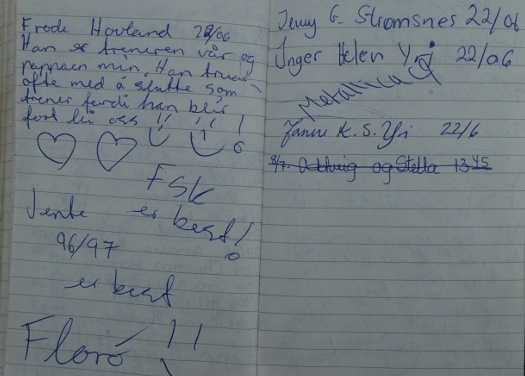 Frode Hovland 22/06
Han er treneren vår og
pappaen min. Han truar
ofte med å slutte som
trener fordi han blir
fort lei oss !! !! !
FSK
er best!
Jente
96/97
er best
Florø !!
Jenny G. Strømsnes 22/06
Inger Helen Yri 22/06
Metallica
Janne K. S. Yri 22/6
8/7. og Stella 13 45